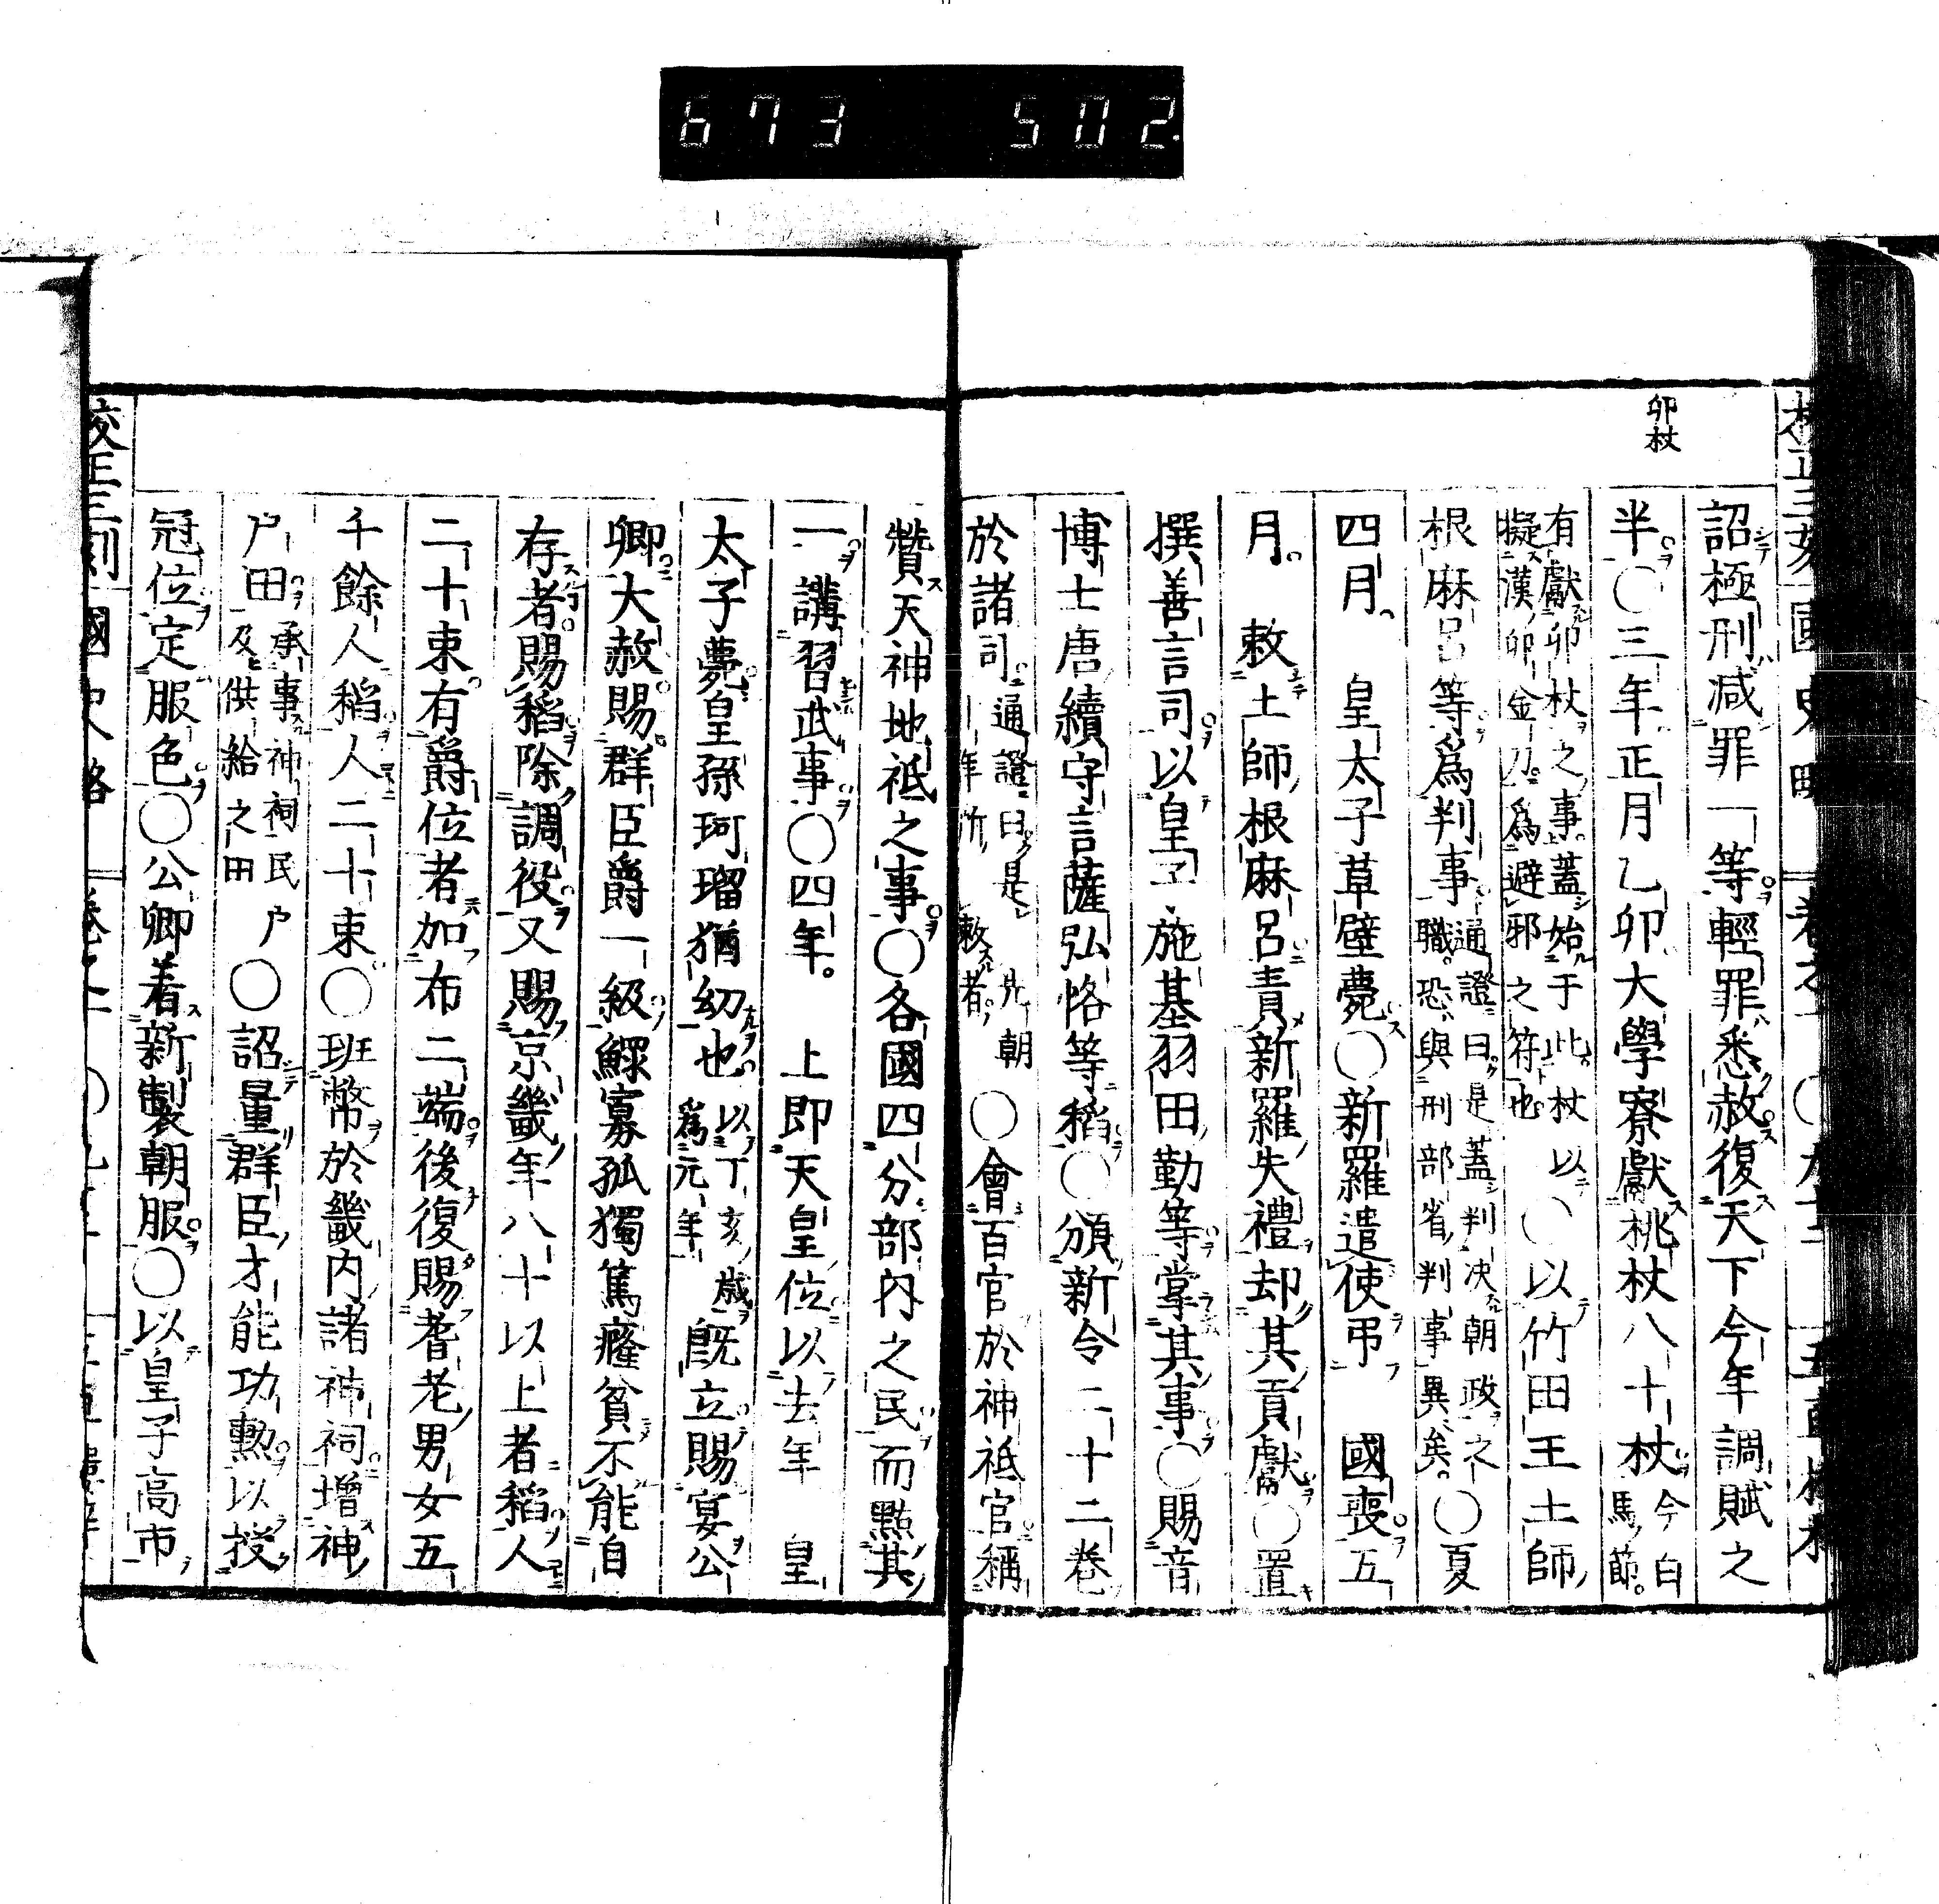 673 502
卯杖
詔極刑減罪一等輕罪悉赦復天下今年調賦之
半○三年正月乙卯大學寮獻桃杖八十杖今白馬節
有獻卯杖之事蓋始于此杖以擬漢卯金刀爲避邪之符也○以竹田王土師
根麻呂等爲判事通證曰是蓋判決朝政之職恐與刑部省判事異矣○夏
四月皇太子草壁薨○新羅遣使弔國喪五
月敕土師根麻呂責新羅失禮却其貢獻○置
撰善言司以皇子施基羽田勤等掌其事○賜音
博士唐續守言薩弘恪等稻○頒新令二十二卷
於諸司通證曰是先朝年所敕者○會百官於神祇官稱
贊天神地祇之事○各國四分部內之民而點其
一講習武事○四年上即天皇位以去年皇
太子薨皇孫珂瑠猶幼也以丁亥歲爲元年既立賜宴公
卿大赦賜群臣爵一級鰥寡孤獨篤癃貧不能自
存者賜稻除調役又賜京畿年八十以上者稻人
二十束有爵位者加布二端後復賜耆老男女五
千餘人稻人二十束○班幣於畿內諸神祠增神
戶田承事神祠民戶及供給之田○詔量群臣才能功勲以授
冠位定服色○公卿着新製朝服○以皇子高市
校正三刻國史略